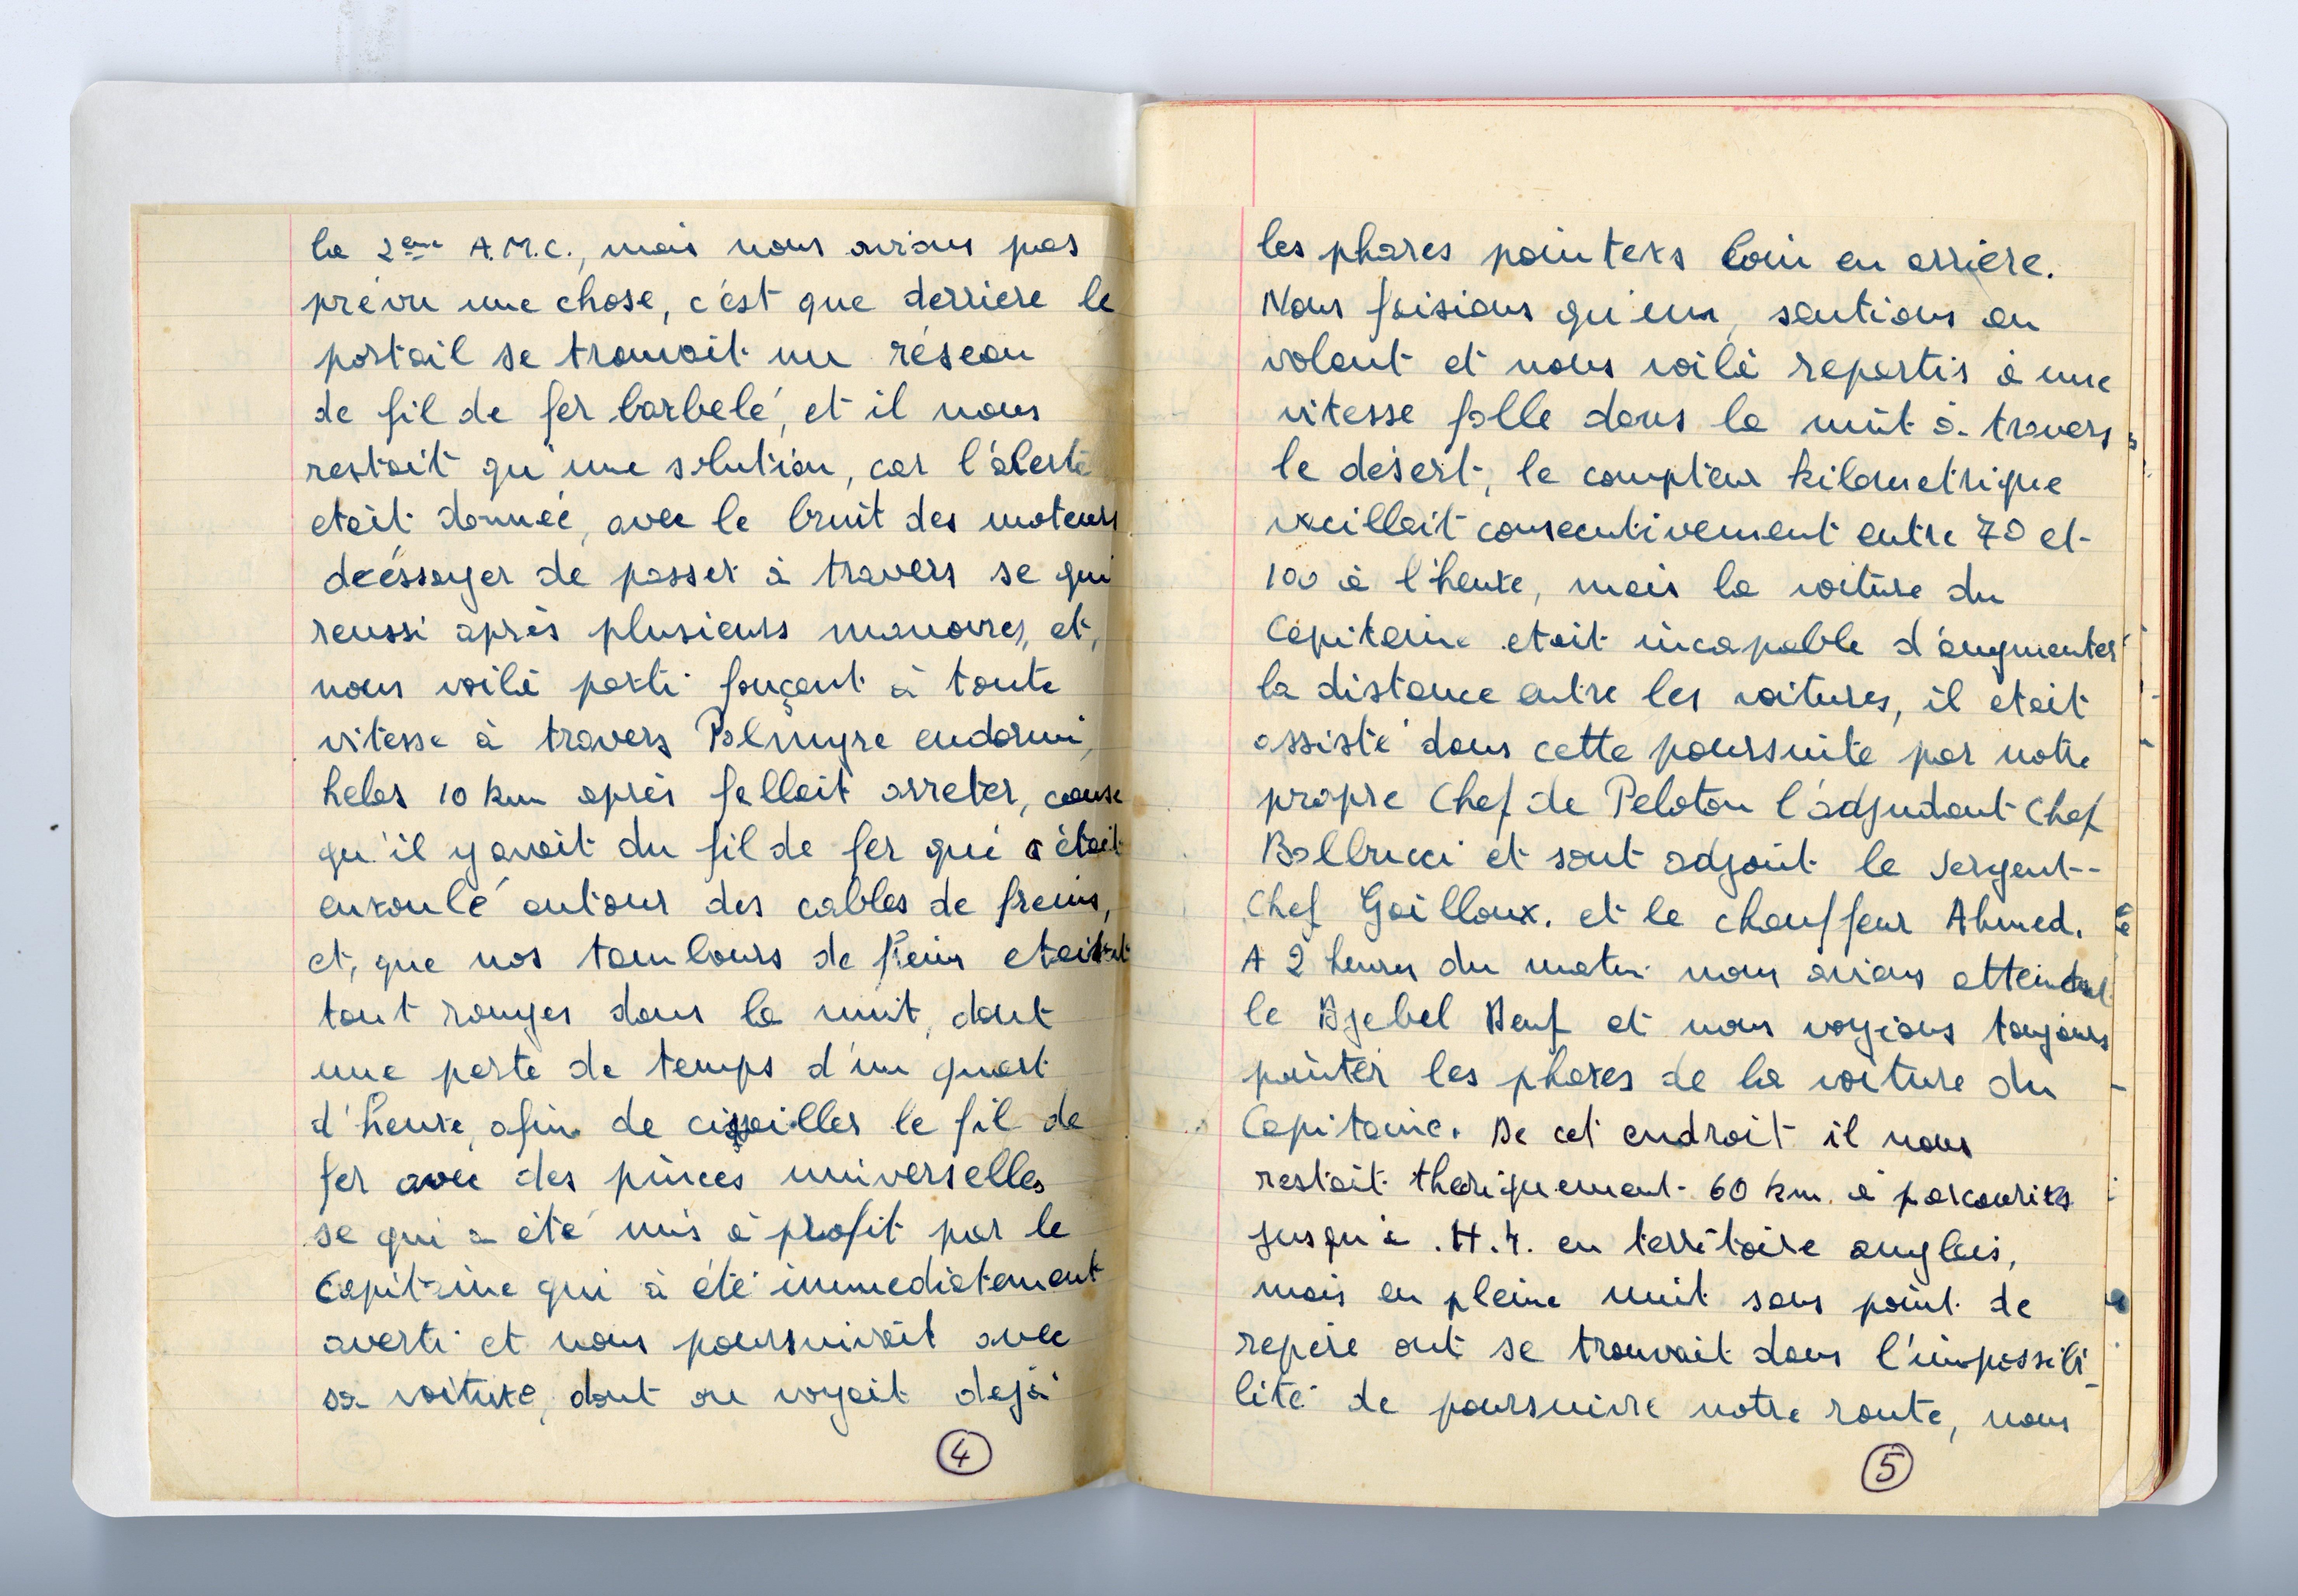 la 2ème A.M.C., mais nous avions pas
prévu une chose, c'ést que derriere le
portail se trouvait un réseau
de fil de fer barbelé, et il nous
restait qu'une solution, car l'alerte
etait donnée, avec le bruit des moteurs
de éssayer de passer à travers se qui
reussi après plusieurs manovres, et,
nous voilà parti fonçant à toute
vitesse à travers Palmyre endormi,
helas 10 km après fallait arreter, cause
qu'il y avait du fil de fer qui s'était
enroulé autour des cables de freins,
et, que nos tambours de frein etaient
tout rouges dans la nuit, dont
une perte de temps d'un quart
d'heure, afin de cissailler le fil de
fer avec des pinces universelles
se qui a été mis à profit par le
Capitaine qui à été immediatement
averti et nous poursuivait avec
sa voiture, dont on voyait dejà
4
les phares pointers loin en arrière.
Nous faisions qu'un, sautions au
volant et nous voilà repartis à une
vitesse folle dans la nuit à travers
le désert, le compteur kilometrique
vacillait consecutivement entre 70 et
100 à l'heure, mais la voiture du
Capitaine etait incapable d'augmenter
la distance entre les voitures, il etait
assisté dans cette poursuite par notre
propre Chef de Peloton l'adjudant Chef
Balbucci et sont adjoint le Sergent--
Chef Gailloux. et le chauffeur Ahmed.
A 2 heures du matin nous avions
le Djebel et nous voyions toujours
pointer les phares de la voiture du
Capitaine. De cet endroit il nous
restait theriquement 60 km. à parcourirs
jusqu'à .H.4. en territoire anglais,
mais en pleine nuit sans point de
repère ont se trouvait dans l'impossibi_
lité de poursuivre notre route, nous
5